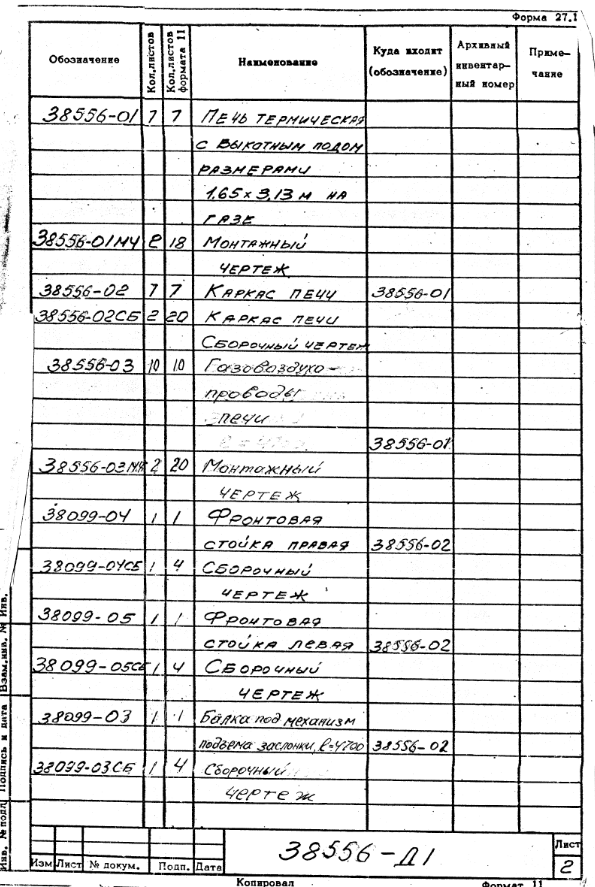 Форма 27.1
Обозначение Кол.листов Кол.листов формата 11 Наименование Куда входит (обозначение) Архивный инвентар-ный номер Приме-чание
38556-01 7 7 Печь термическая
с выкотным подом
размерами
1,65 x 3,13 м на
газе
38556-01МЧ 2 18 Монтажный
чертеж
38556-02 7 7 Каркас печи 38556-01
38556-02СБ 2 20 Каркас печи
Сборочный чертеж
38556-03 10 10 Газовоздухо-
проводы
печи
38556-01
38556-03МЧ 2 20 Монтажный
чертеж
38099-04 1 1 Фронтовая
стойка правая 38556-02
38099-04СБ 1 4 Сборочный
чертеж
38099-05 1 1 Фронтовая
стойка левая 38556-02
38099-05СБ 1 4 Сборочный
чертеж
38099-03 1 1 Балка под механизм
подъема заслонки, l=4700 38556-02
38099-03СБ 1 4 Сборочный
чертеж
Инв. № подл. Подпись и дата Взам.инв. № Инв.
38556-Д1
Лист
2
Изм Лист № докум. Подп. Дата
Копировал Формат 11